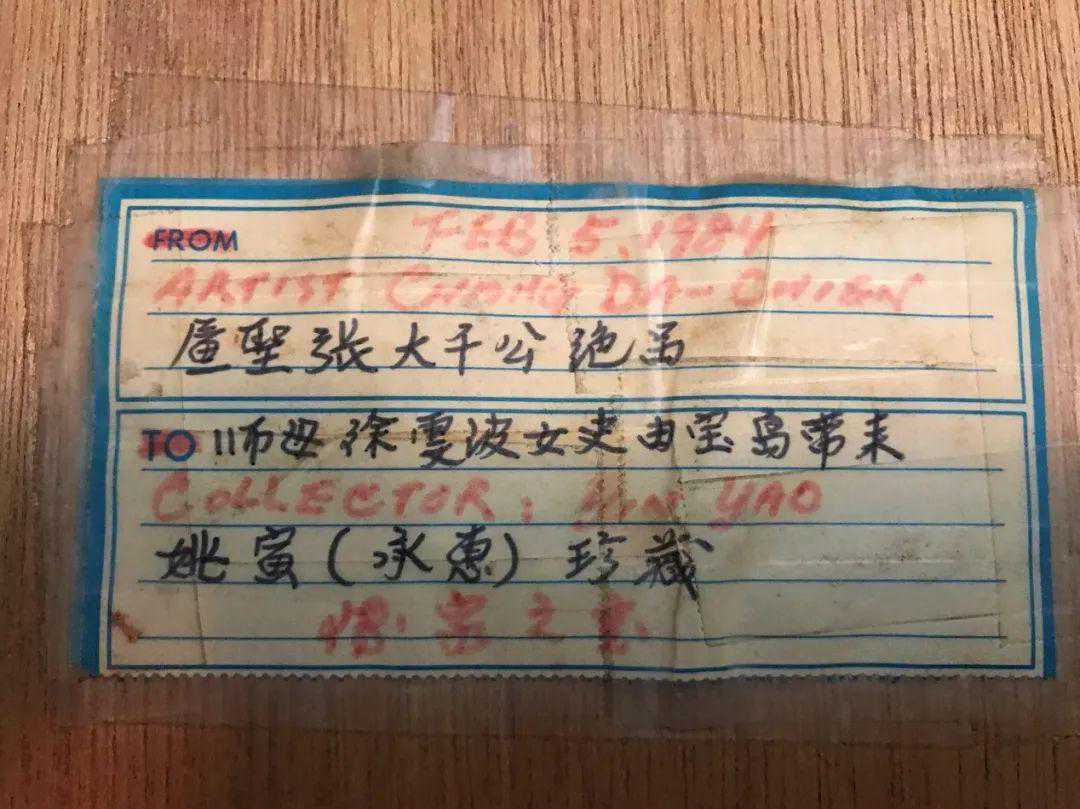 FROM FEB 5, 1984
ARTIST CHANG DA-CHIEN
画聖张大千公绝笔
TO 师母徐雯波女史由宝岛带来
COLLECTOR: YIN YAO
姚寅(承惠)珍藏
之